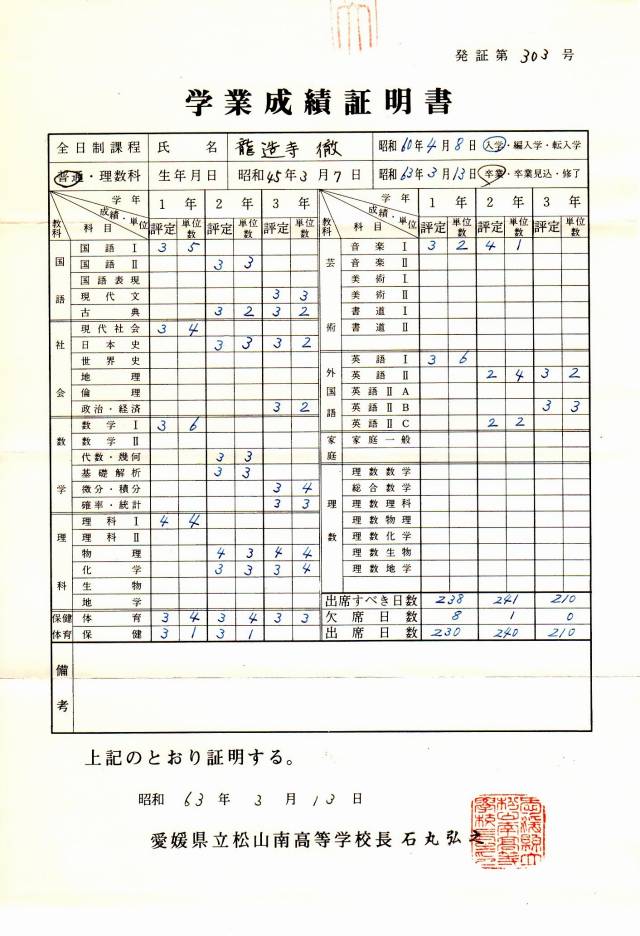 発証第 303 号
学業成績証明書
全日制課程 氏 名 龍造寺 徹 昭和60年4月8日 入学・編入学・転入学
普通・理数科 生年月日 昭和45年3月7日 昭和63年3月13日 卒業・卒業見込・修了
学年 成績・単位 教科 科目 1年 2年 3年 学年 成績・単位 教科 科目 1年 2年 3年
評定 単位数 評定 単位数 評定 単位数 評定 単位数 評定 単位数 評定 単位数
国語 国語Ⅰ 3 5
国語Ⅱ 3 3
国語表現
現代文 3 3
古典 3 2 3 2
社会 現代社会 3 4
日本史 3 3 3 2
世界史
地理
倫理
政治・経済 3 2
数学 数学Ⅰ 3 6
数学Ⅱ
代数・幾何 3 3
基礎解析 3 3
微分・積分 3 4
確率・統計 3 3
理科 理科Ⅰ 4 4
理科Ⅱ
物理 4 3 4 4
化学 3 3 3 4
生物
地学
保健体育 体育 3 4 3 4 3 3
保健 3 1 3 1
芸術 音楽Ⅰ 3 2 4 1
音楽Ⅱ
美術Ⅰ
美術Ⅱ
書道Ⅰ
書道Ⅱ
外国語 英語Ⅰ 3 6
英語Ⅱ 2 4 3 2
英語ⅡA
英語ⅡB 3 3
英語ⅡC 2 2
家庭 家庭一般
理数 理数数学
総合数学
理数理科
理数物理
理数化学
理数生物
理数地学
出席すべき日数 238 241 210
欠席日数 8 1 0
出席日数 230 240 210
備考
上記のとおり証明する。
昭和 63 年 3 月 13 日
愛媛県立松山南高等学校長 石丸弘之